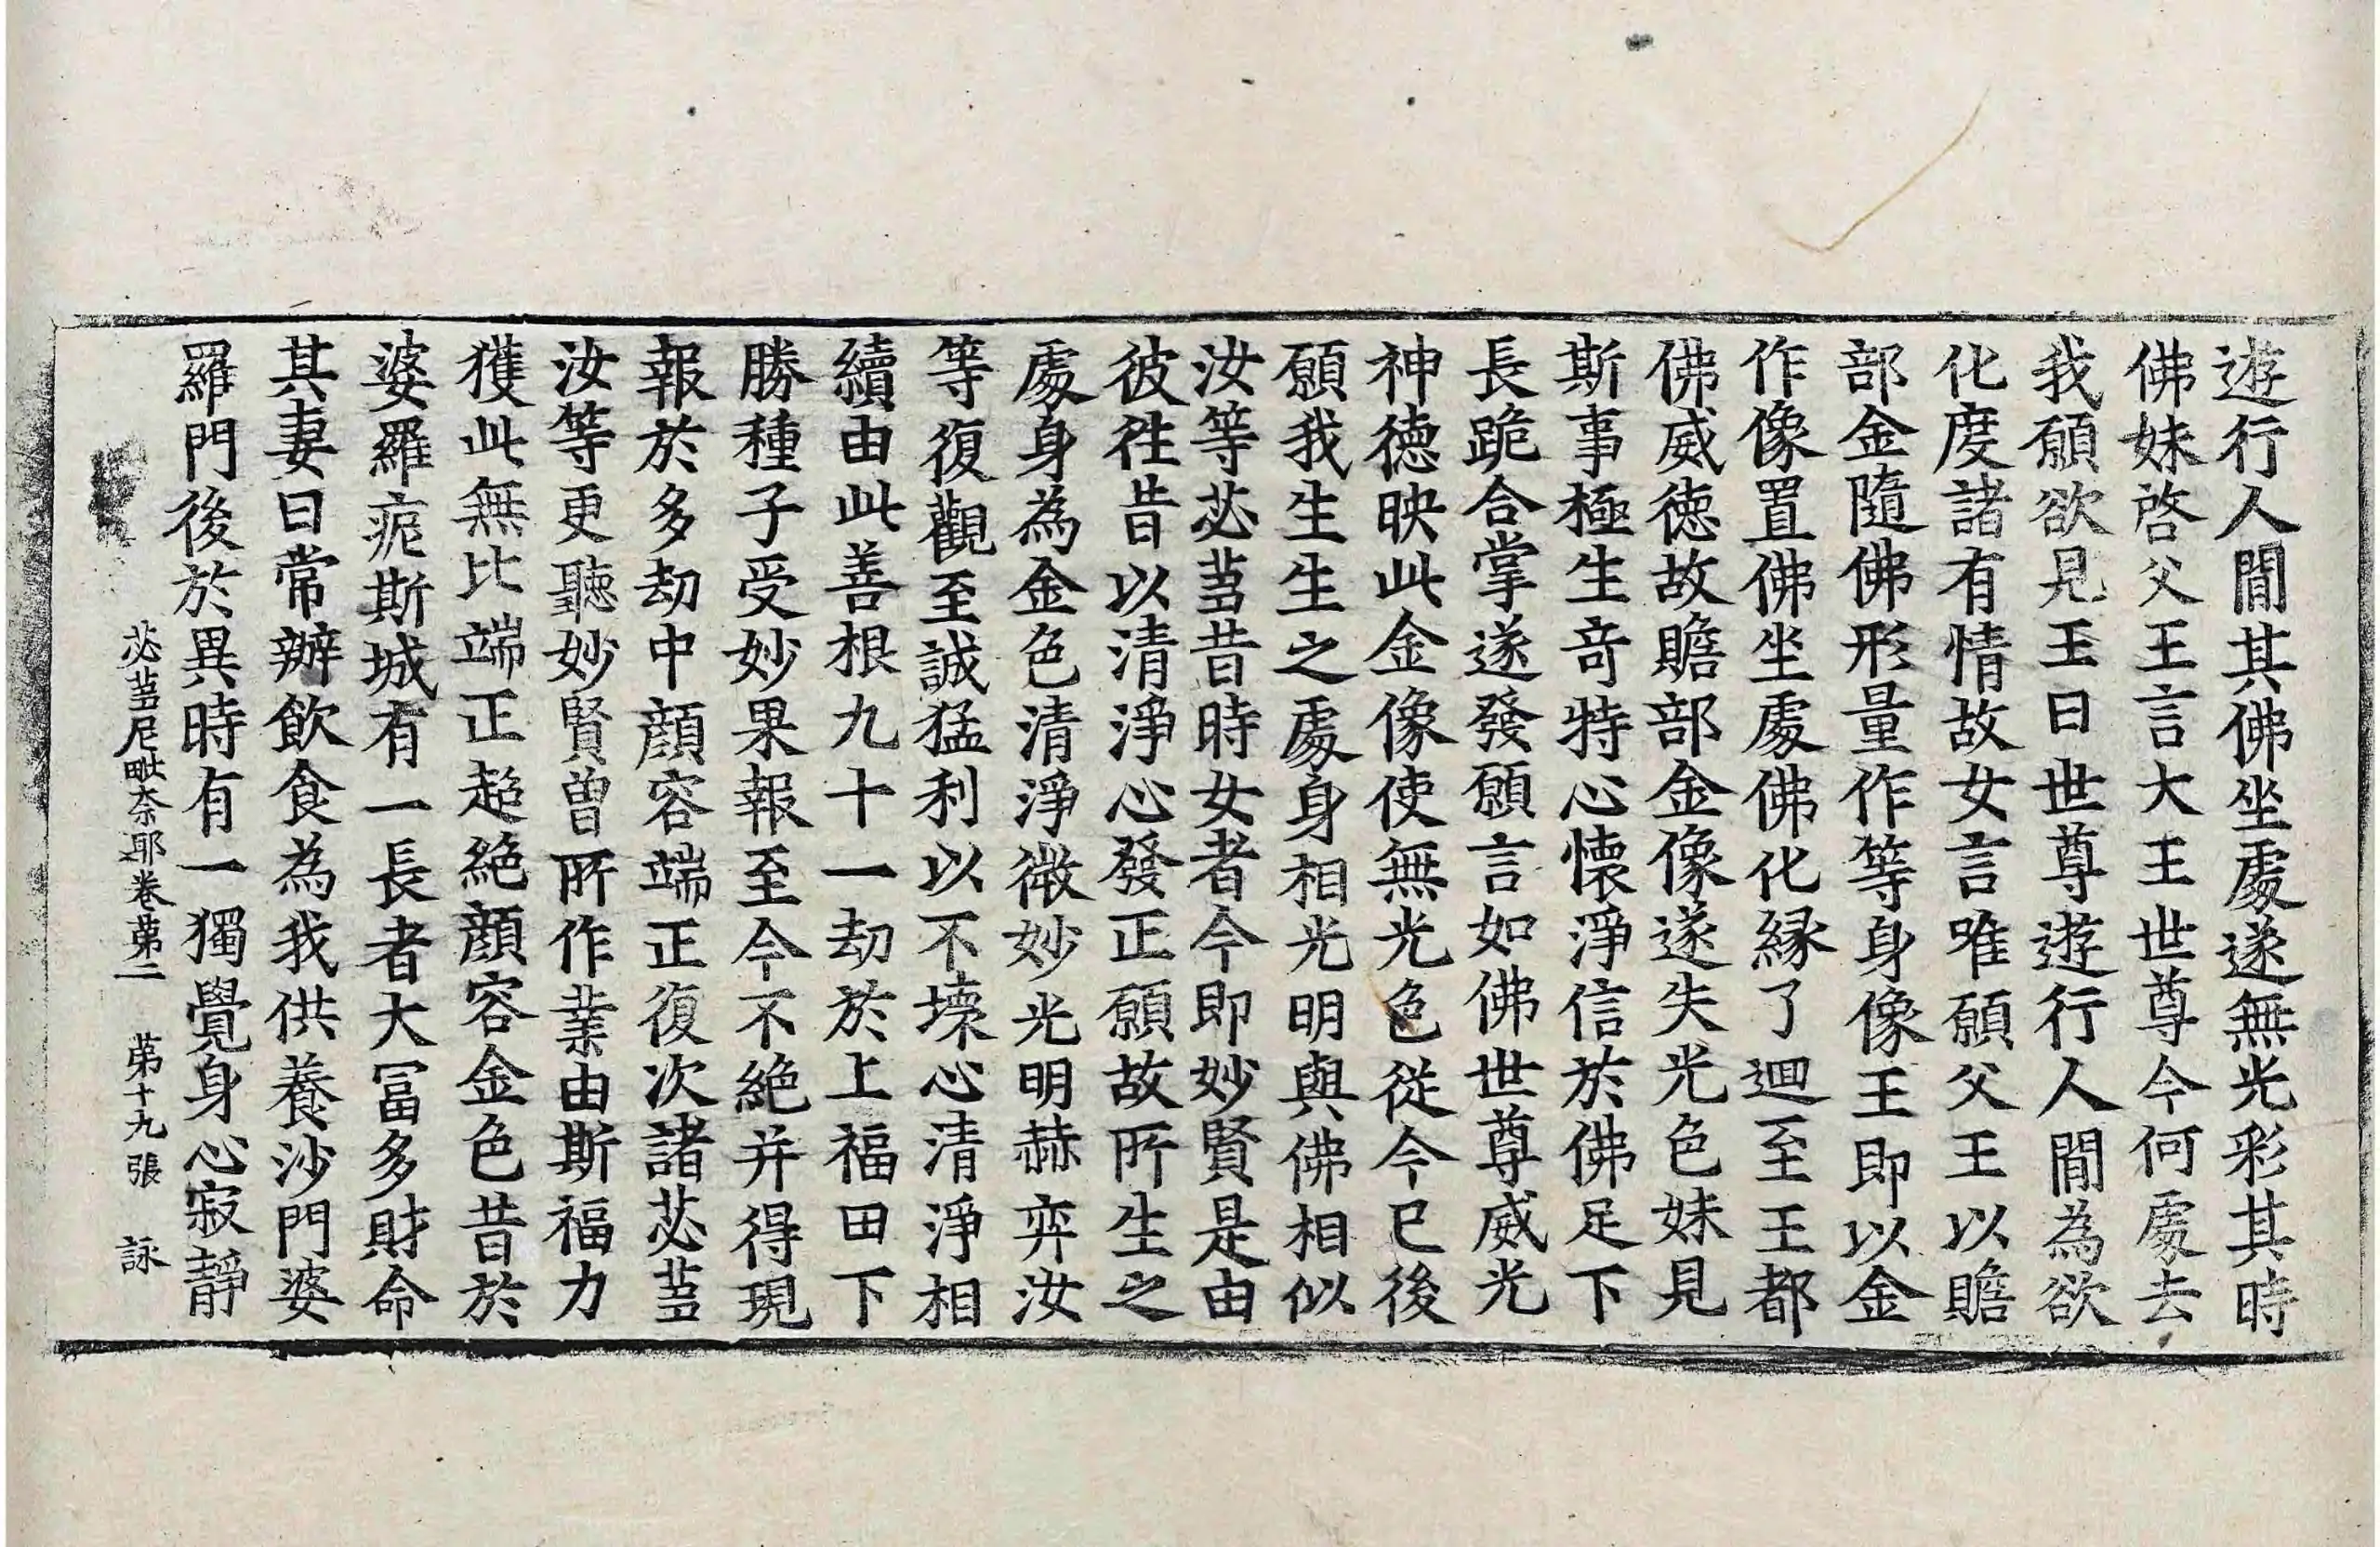 遊行人間其佛坐處遂無光彩其時
佛妹啓父王言大王世尊今何處去
我願欲見王曰世尊遊行人間為欲
化度諸有情故女言唯願父王以贍
部金隨佛形量作等身像王即以金
作像置佛坐處佛化縁了迴至王都
佛威徳故贍部金像遂失光色妹見
斯事極生奇特心懷淨信於佛足下
長跪合掌遂發願言如佛世尊威光
神徳映此金像使無光色從今已後
願我生生之處身相光明與佛相似
汝等苾蒭昔時女者今即妙賢是由
彼往昔以清淨心發正願故所生之
處身為金色清淨微妙光明赫弈汝
等復觀至誠猛利以不壊心清淨相
續由此善根九十一劫於上福田下
勝種子受妙果報至今不絶并得現
報於多劫中顔容端正復次諸苾蒭
汝等更聽妙賢曽所作業由斯福力
獲此無比端正超絶顔容金色昔於
婆羅痆斯城有一長者大冨多財命
其妻曰常辦飲食為我供養沙門婆
羅門後於異時有一獨覺身心寂靜
苾蒭尼毗奈耶卷第二　第十九張　詠